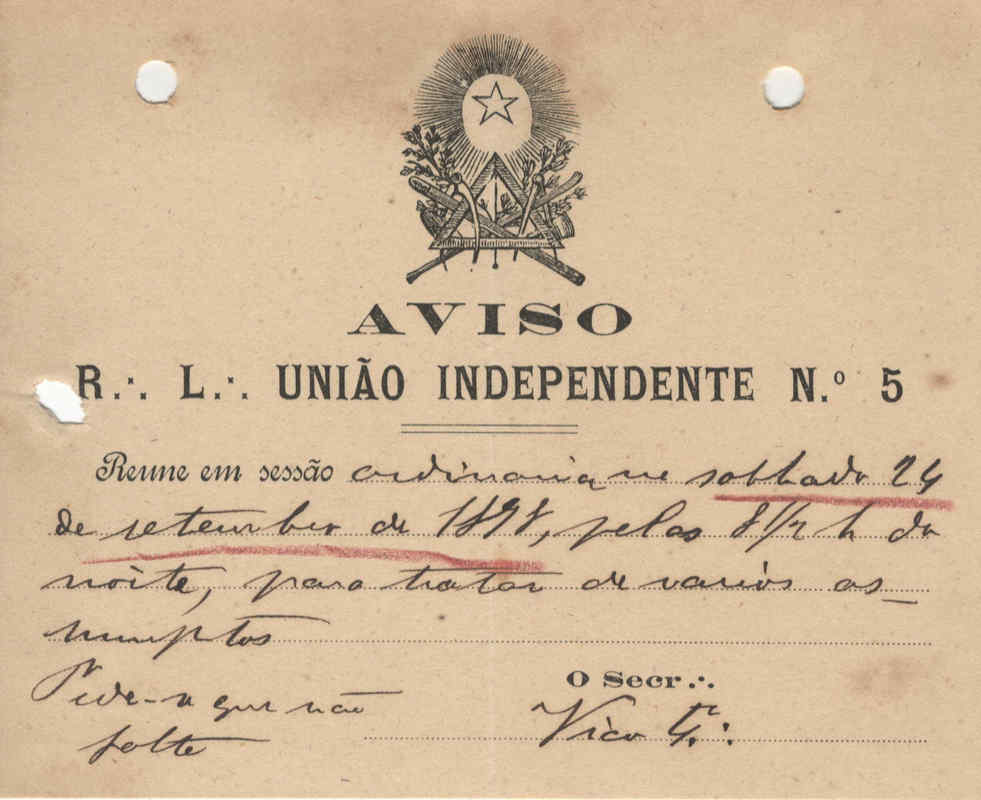 AVISO
R.∴ L.∴ UNIÃO INDEPENDENTE N.º 5
Reune em sessão ordinaria no sabbado 24
de setembro de 1898, pelas 8 1/2 h da
noite, para tratar de varios as-
sumptos
Pede-se que não
falte
O Secr.∴
Vico